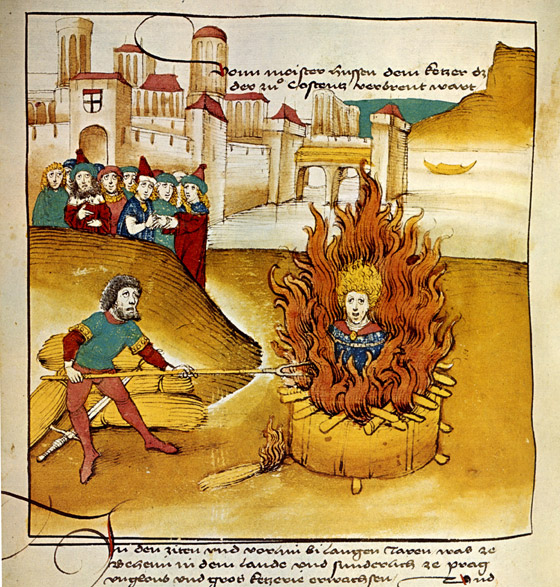 Vonn meister hussen dem ketzer dz
der zů Costentz verbrent wart
In den ziten und vormi bi langen Jaren was ze
Behem in dem lande und sunderlich ze prag
ungloub und gros ketzerie erwachsen Und